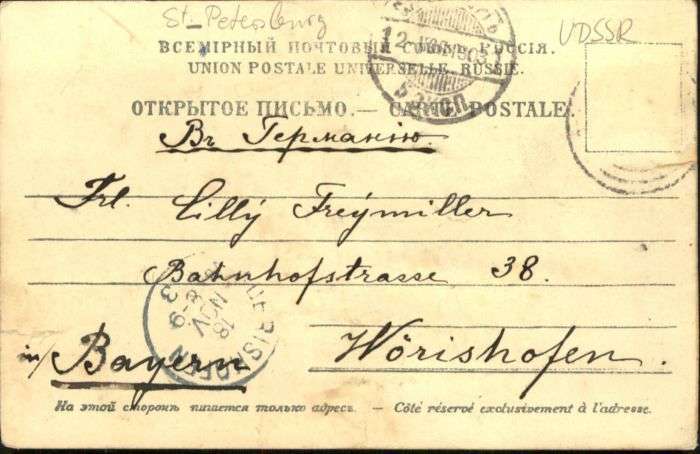 St. Petersburg
UDSSR
ВСЕМІРНЫЙ ПОЧТОВЫЙ СОЮЗЪ. РОССІЯ.
UNION POSTALE UNIVERSELLE. RUSSIE.
ОТКРЫТОЕ ПИСЬМО. — CARTE POSTALE.
Въ Германію.
Frl. Cilly Freymiller
Bahnhofstrasse 38.
in/ Bayern Wörishofen.
18 NOV 8-9
На этой сторонѣ пишется только адресъ. — Côté réservé exclusivement à l'adresse.